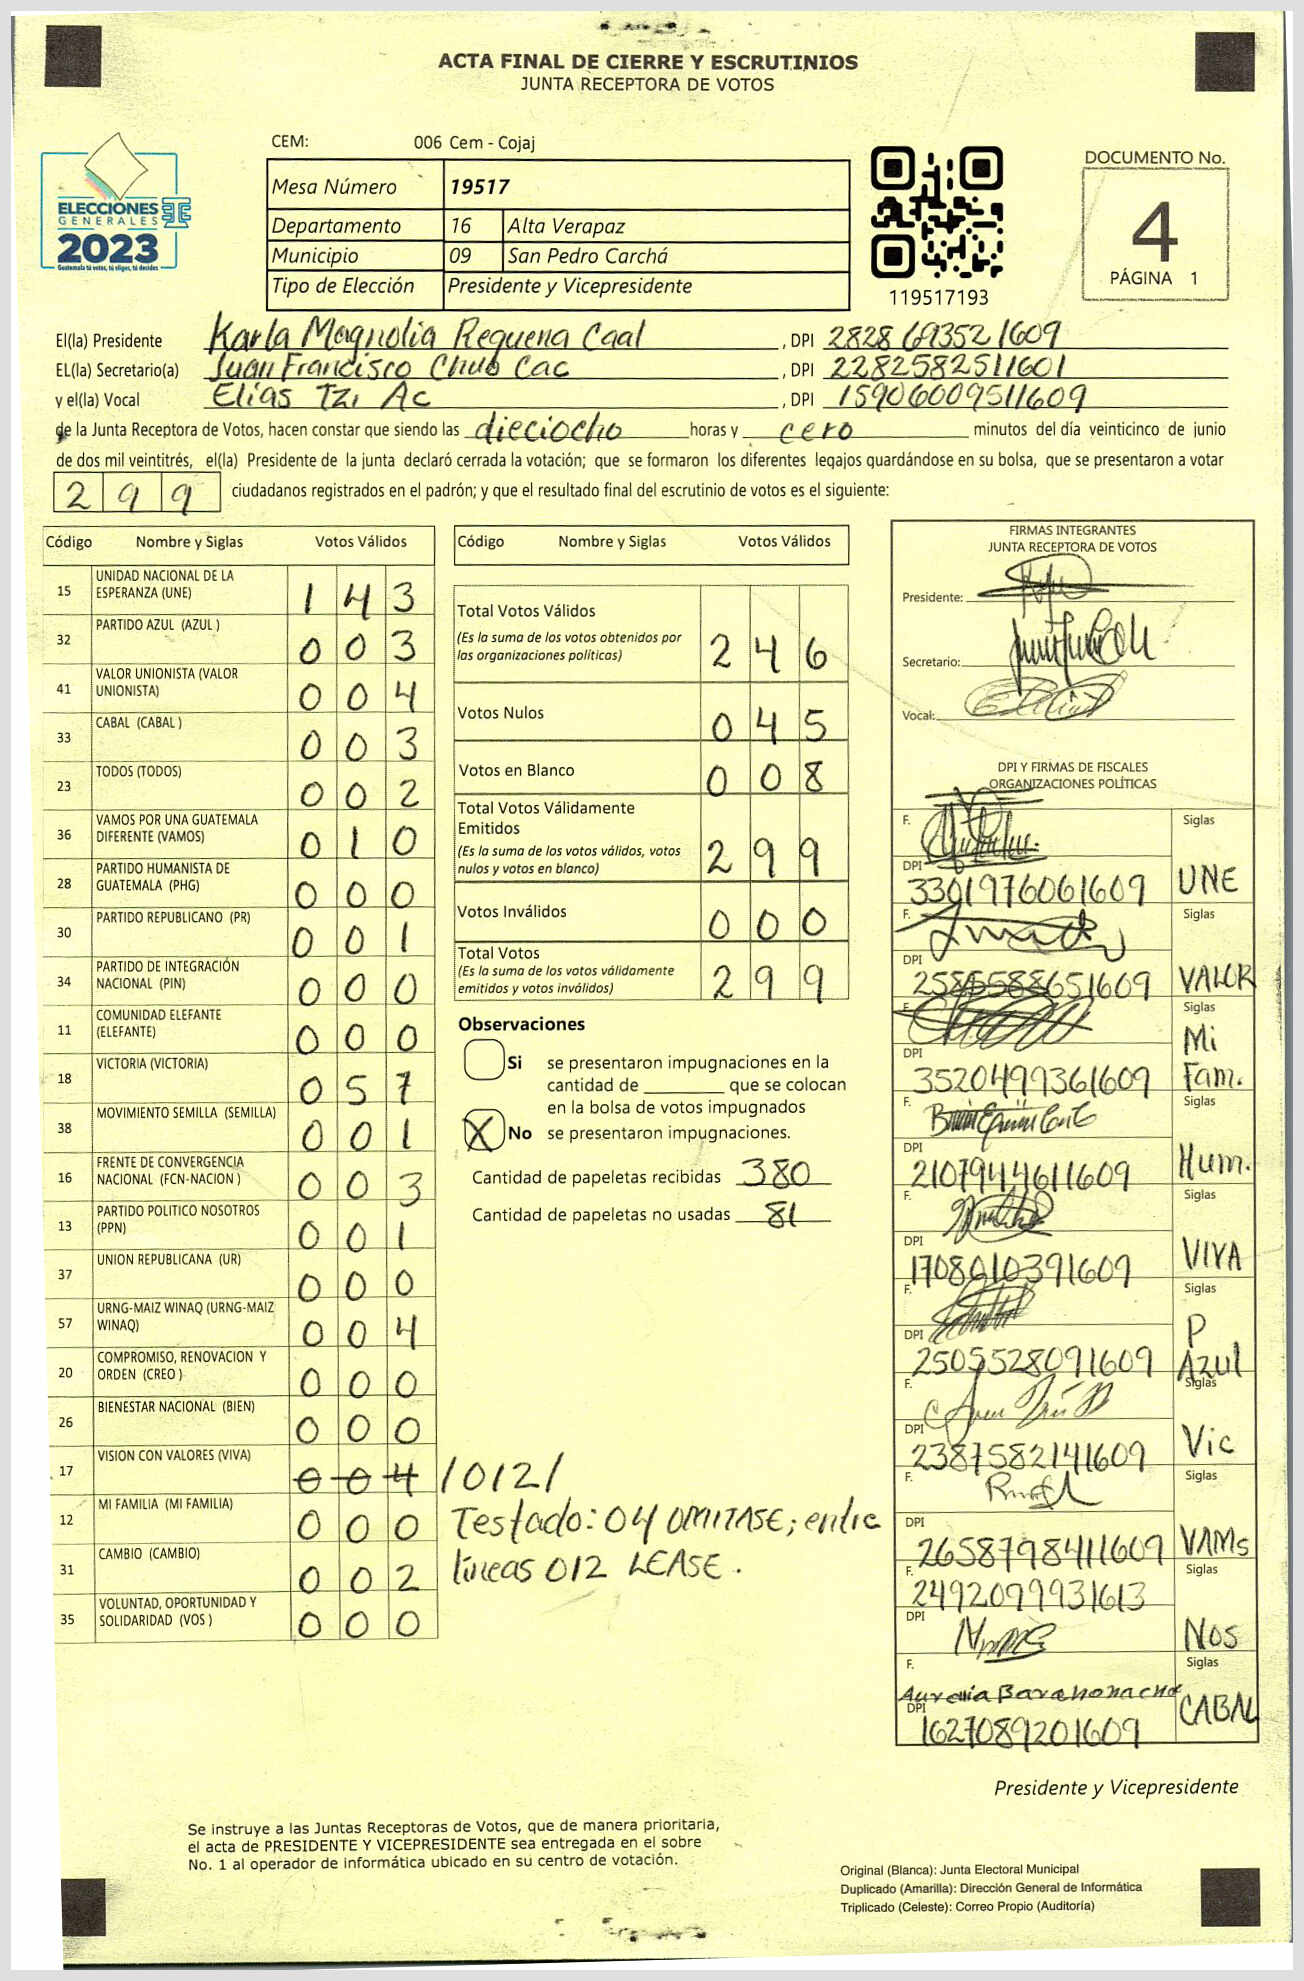 ACTA FINAL DE CIERRE Y ESCRUTINIOS
JUNTA RECEPTORA DE VOTOS
CEM: 006 Cem - Cojaj
ELECCIONES
GENERALES
2023
Guatemala tú votas, tú eliges, tú decides
Mesa Número 19517
Departamento 16 Alta Verapaz
Municipio 09 San Pedro Carchá
Tipo de Elección Presidente y Vicepresidente
119517193
DOCUMENTO No.
4
PÁGINA 1
El(la) Presidente Karla Magnolia Requena Caal , DPI 2828693521609
EL(la) Secretario(a) Juan Francisco Chub Cac , DPI 2282582511601
y el(la) Vocal Elias Tzi Ac , DPI 15906009511609
de la Junta Receptora de Votos, hacen constar que siendo las dieciocho horas y cero minutos del día veinticinco de junio
de dos mil veintitrés, el(la) Presidente de la junta declaró cerrada la votación; que se formaron los diferentes legajos guardándose en su bolsa, que se presentaron a votar
299 ciudadanos registrados en el padrón; y que el resultado final del escrutinio de votos es el siguiente:
Código Nombre y Siglas Votos Válidos
15 UNIDAD NACIONAL DE LA ESPERANZA (UNE) 143
32 PARTIDO AZUL (AZUL ) 003
41 VALOR UNIONISTA (VALOR UNIONISTA) 004
33 CABAL (CABAL ) 003
23 TODOS (TODOS) 002
36 VAMOS POR UNA GUATEMALA DIFERENTE (VAMOS) 010
28 PARTIDO HUMANISTA DE GUATEMALA (PHG) 000
30 PARTIDO REPUBLICANO (PR) 001
34 PARTIDO DE INTEGRACIÓN NACIONAL (PIN) 000
11 COMUNIDAD ELEFANTE (ELEFANTE) 000
18 VICTORIA (VICTORIA) 057
38 MOVIMIENTO SEMILLA (SEMILLA) 001
16 FRENTE DE CONVERGENCIA NACIONAL (FCN-NACION ) 003
13 PARTIDO POLITICO NOSOTROS (PPN) 001
37 UNION REPUBLICANA (UR) 000
57 URNG-MAIZ WINAQ (URNG-MAIZ WINAQ) 004
20 COMPROMISO, RENOVACION Y ORDEN (CREO ) 000
26 BIENESTAR NACIONAL (BIEN) 000
17 VISION CON VALORES (VIVA) 004 /012/
12 MI FAMILIA (MI FAMILIA) 000
31 CAMBIO (CAMBIO) 002
35 VOLUNTAD, OPORTUNIDAD Y SOLIDARIDAD (VOS ) 000
Testado: 04 OMITASE; entre
lineas 012 LEASE.
Código Nombre y Siglas Votos Válidos
Total Votos Válidos 246
(Es la suma de los votos obtenidos por
las organizaciones políticas)
Votos Nulos 045
Votos en Blanco 008
Total Votos Válidamente
Emitidos 299
(Es la suma de los votos válidos, votos
nulos y votos en blanco)
Votos Inválidos 000
Total Votos 299
(Es la suma de los votos válidamente
emitidos y votos inválidos)
Observaciones
Si se presentaron impugnaciones en la
cantidad de ________ que se colocan
en la bolsa de votos impugnados
X No se presentaron impugnaciones.
Cantidad de papeletas recibidas 380
Cantidad de papeletas no usadas 81
FIRMAS INTEGRANTES
JUNTA RECEPTORA DE VOTOS
Presidente:
Secretario:
Vocal:
DPI Y FIRMAS DE FISCALES
ORGANIZACIONES POLÍTICAS
F. Siglas
DPI 3301976061609 UNE
F. Siglas
DPI 2585588651609 VALOR
F. Siglas
DPI 3520499361609 Mi Fam.
F. Siglas
DPI 2107944611609 Hum.
F. Siglas
DPI 1708010391609 VIVA
F. Siglas
DPI 2505528091609 P Azul
F. Siglas
DPI 2387582141609 Vic
F. Siglas
DPI 2658798411609 VAMs
F. Siglas
2492099931613
DPI Nos
F. Siglas
DPI 1627089201609 CABAL
Presidente y Vicepresidente
Se instruye a las Juntas Receptoras de Votos, que de manera prioritaria,
el acta de PRESIDENTE Y VICEPRESIDENTE sea entregada en el sobre
No. 1 al operador de informática ubicado en su centro de votación.
Original (Blanca): Junta Electoral Municipal
Duplicado (Amarilla): Dirección General de Informática
Triplicado (Celeste): Correo Propio (Auditoría)